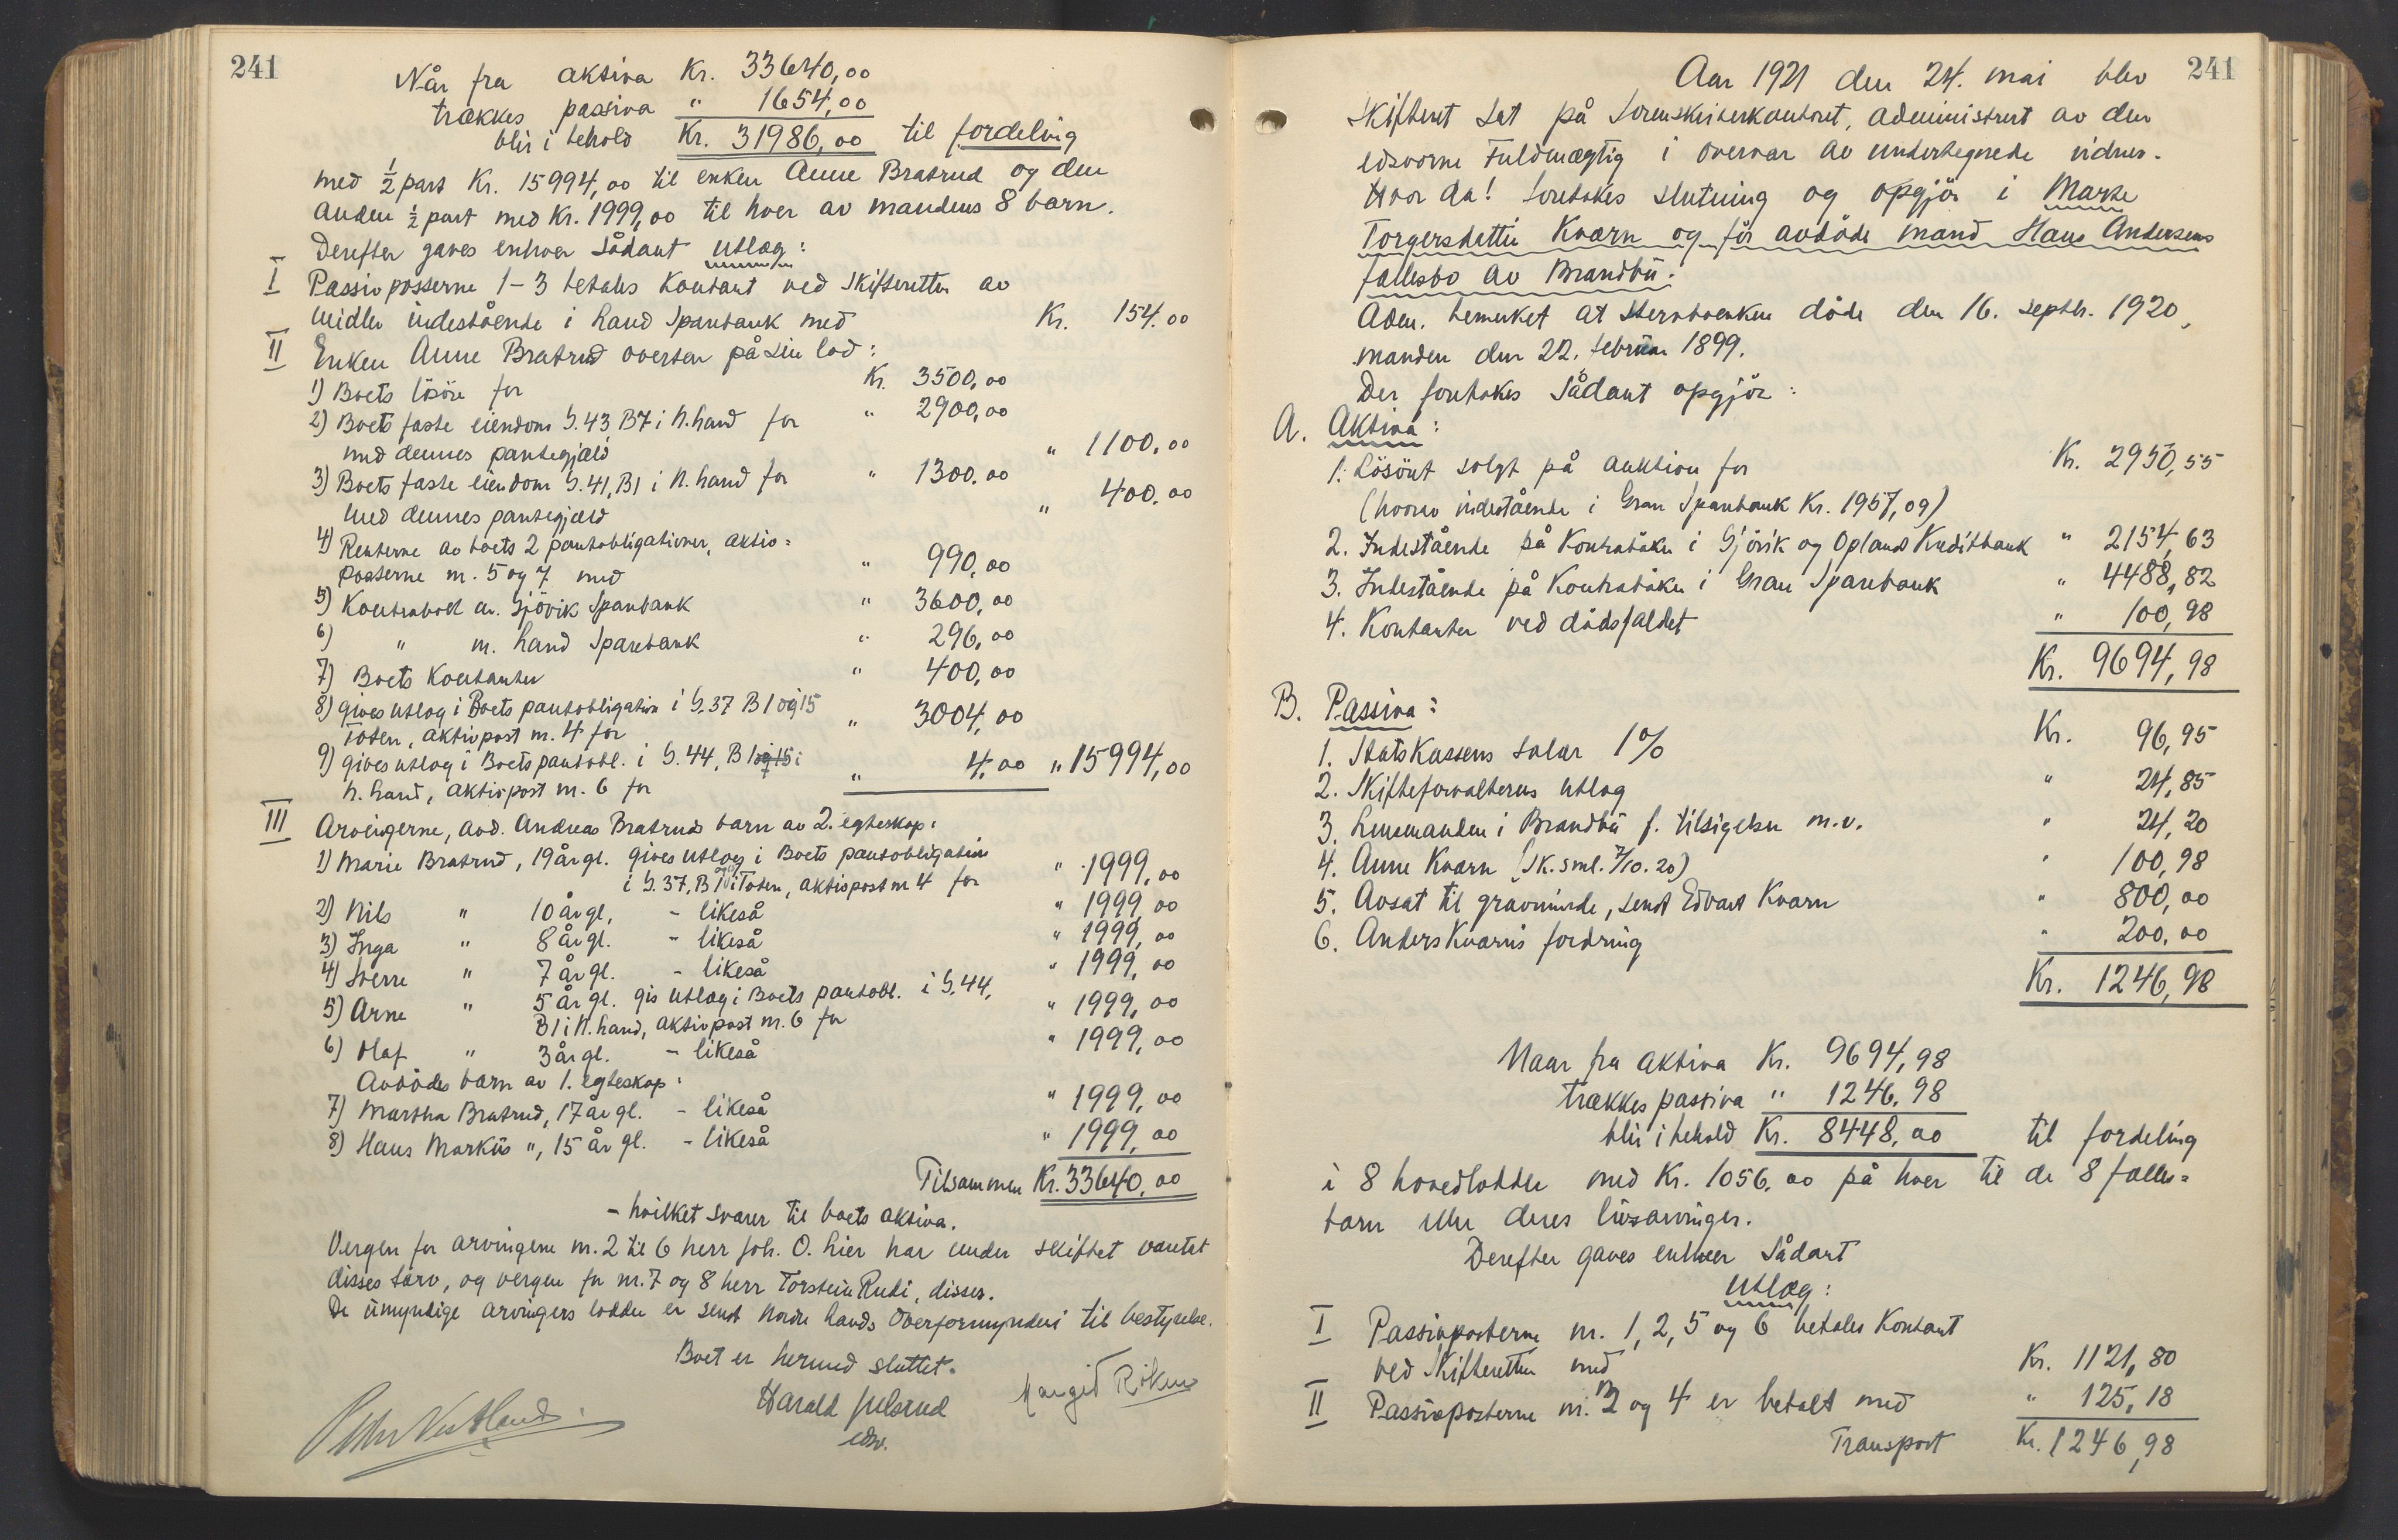 241
Når fra aktiva Kr. 33640,00
trækkes passiva " 1654,00
blir i behold Kr. 31986,00 til fordeling
med ½ part Kr. 15994,00 til enken Anne Bratrud og den
anden ½ part med Kr. 1999,00 til hver av mandens 8 barn.
Derefter gaves enhver sådant utlæg:
I Passivposterne 1-3 betales kontant ved skifteretten av
midler indestående i Land Sparebank med Kr. 154.00
II Enken Anne Bratrud overtar på sin lod:
1) Boets lösöre for Kr. 3500,00
2) Boets faste eiendom G. 43 B7 i N. Land for " 2900,00
med dennes pantegjæld " 1100,00
3) Boets faste eiendom G. 41, B1 i N. Land for " 1300.00
med dennes pantegjæld " 400.00
4) Renterne av boets 2 pantobligationer, aktiv=
posterne nr. 5 og 7 med " 990,00
5) Kontrabok nr. Gjövik Sparebank " 3600,00
6) " nr. Land Sparebank " 296,00
7) Boets kontanter " 400,00
8) gives utlæg i Boets pantobligation i G. 37 B1 og 15
Toten, aktivpost nr. 4 for " 3004,00
9) gives utlæg i Boets pantobl. i G. 44, B1 og 15 i
N. Land, aktivpost nr. 6 for " 4,00 " 15994,00
III Arvingerne, avd. Andreas Bratruds barn av 2. egteskap:
1) Marie Bratrud, 19 år gl. gives utlæg i Boets pantobligation
i G. 37, B1 i Toten, aktivpost nr 4 for " 1999,00
2) Nils " 10 år gl. - likeså " 1999,00
3) Inga " 8 år gl. - likeså " 1999,00
4) Sverre " 7 år gl. - likeså " 1999,00
5) Arne " 5 år gl. gis utlæg i Boets pantobl. i G. 44,
B1 i N. Land, aktivpost nr. 6 for " 1999,00
6) Olaf " 3 år gl. - likeså " 1999,00
Avdödes barn av 1. egteskap:
7) Martha Bratrud, 17 år gl. - likeså " 1999,00
8) Hans Markus ", 15 år gl. - likeså " 1999,00
Tilsammen Kr. 33640,00
- hvilket svarer til boets aktiva.
Vergen for arvingene nr. 2 til 6 herr Joh. O. Lier har under skiftet varetat
disses tarv, og vergen for nr. 7 og 8 herr Torstein Rudi, disses.
De umyndige arvingers lodder er sendt Nordre Lands Overformynderi til bestyrelse.
Boet er hermed sluttet.
Harald Julsrud Margit
edsv.
241
Aar 1921 den 24. mai blev
skifteret sat på Sorenskriverkontoret, administrert av den
edsvorne Fuldmægtig i overvær av undertegnede vidner.
Hvor da! foretokes slutning og opgjör i Marte
Torgersdatter Kværn og för avdöde mand Hans Andersens
fællesbo av Brandbu.
Adm. bemerket at Stervboenken döde den 16. septbr. 1920,
manden den 22. februar 1899.
Der foretokes sådant opgjör:
A. Aktiva:
1. Lösöret solgt på auktion for Kr. 2950,55
(hvorav indestående i Gran Sparebank Kr. 1957,09)
2. Indestående på Kontrabåken i Gjövik og Opland Kreditbank " 2154,63
3. Indestående på Kontrabåken i Gran Sparebank " 4488,82
4. Kontanter ved dödsfaldet " 100,98
Kr. 9694,98
B. Passiva:
1. Statskassens salær 1% Kr. 96,95
2. Skifteforvalterens utlæg " 24,85
3. Lensmanden i Brandbu f. tilsigelser m.v. " 24,20
4. Anne Kværn (Sk. sml. 7/10.20) " 100,98
5. Avsat til gravminde, sendt Edvart Kværn " 800,00
6. Anders Kværns fordring " 200,00
Kr. 1246,98
Naar fra aktiva Kr. 9694,98
trækkes passiva " 1246.98
blir i behold Kr. 8448,00 til fordeling
i 8 hovedlodder med Kr. 1056,00 på hver til de 8 fælles=
barn eller deres livsarvinger.
Derefter gaves enhver sådant
Utlæg:
I Passivposterne nr. 1, 2, 5 og 6 betales kontant
ved skifteretten med Kr. 1121,80
II Passivposterne nr. 3 og 4 er betalt med " 125,18
Transport Kr. 1246,98